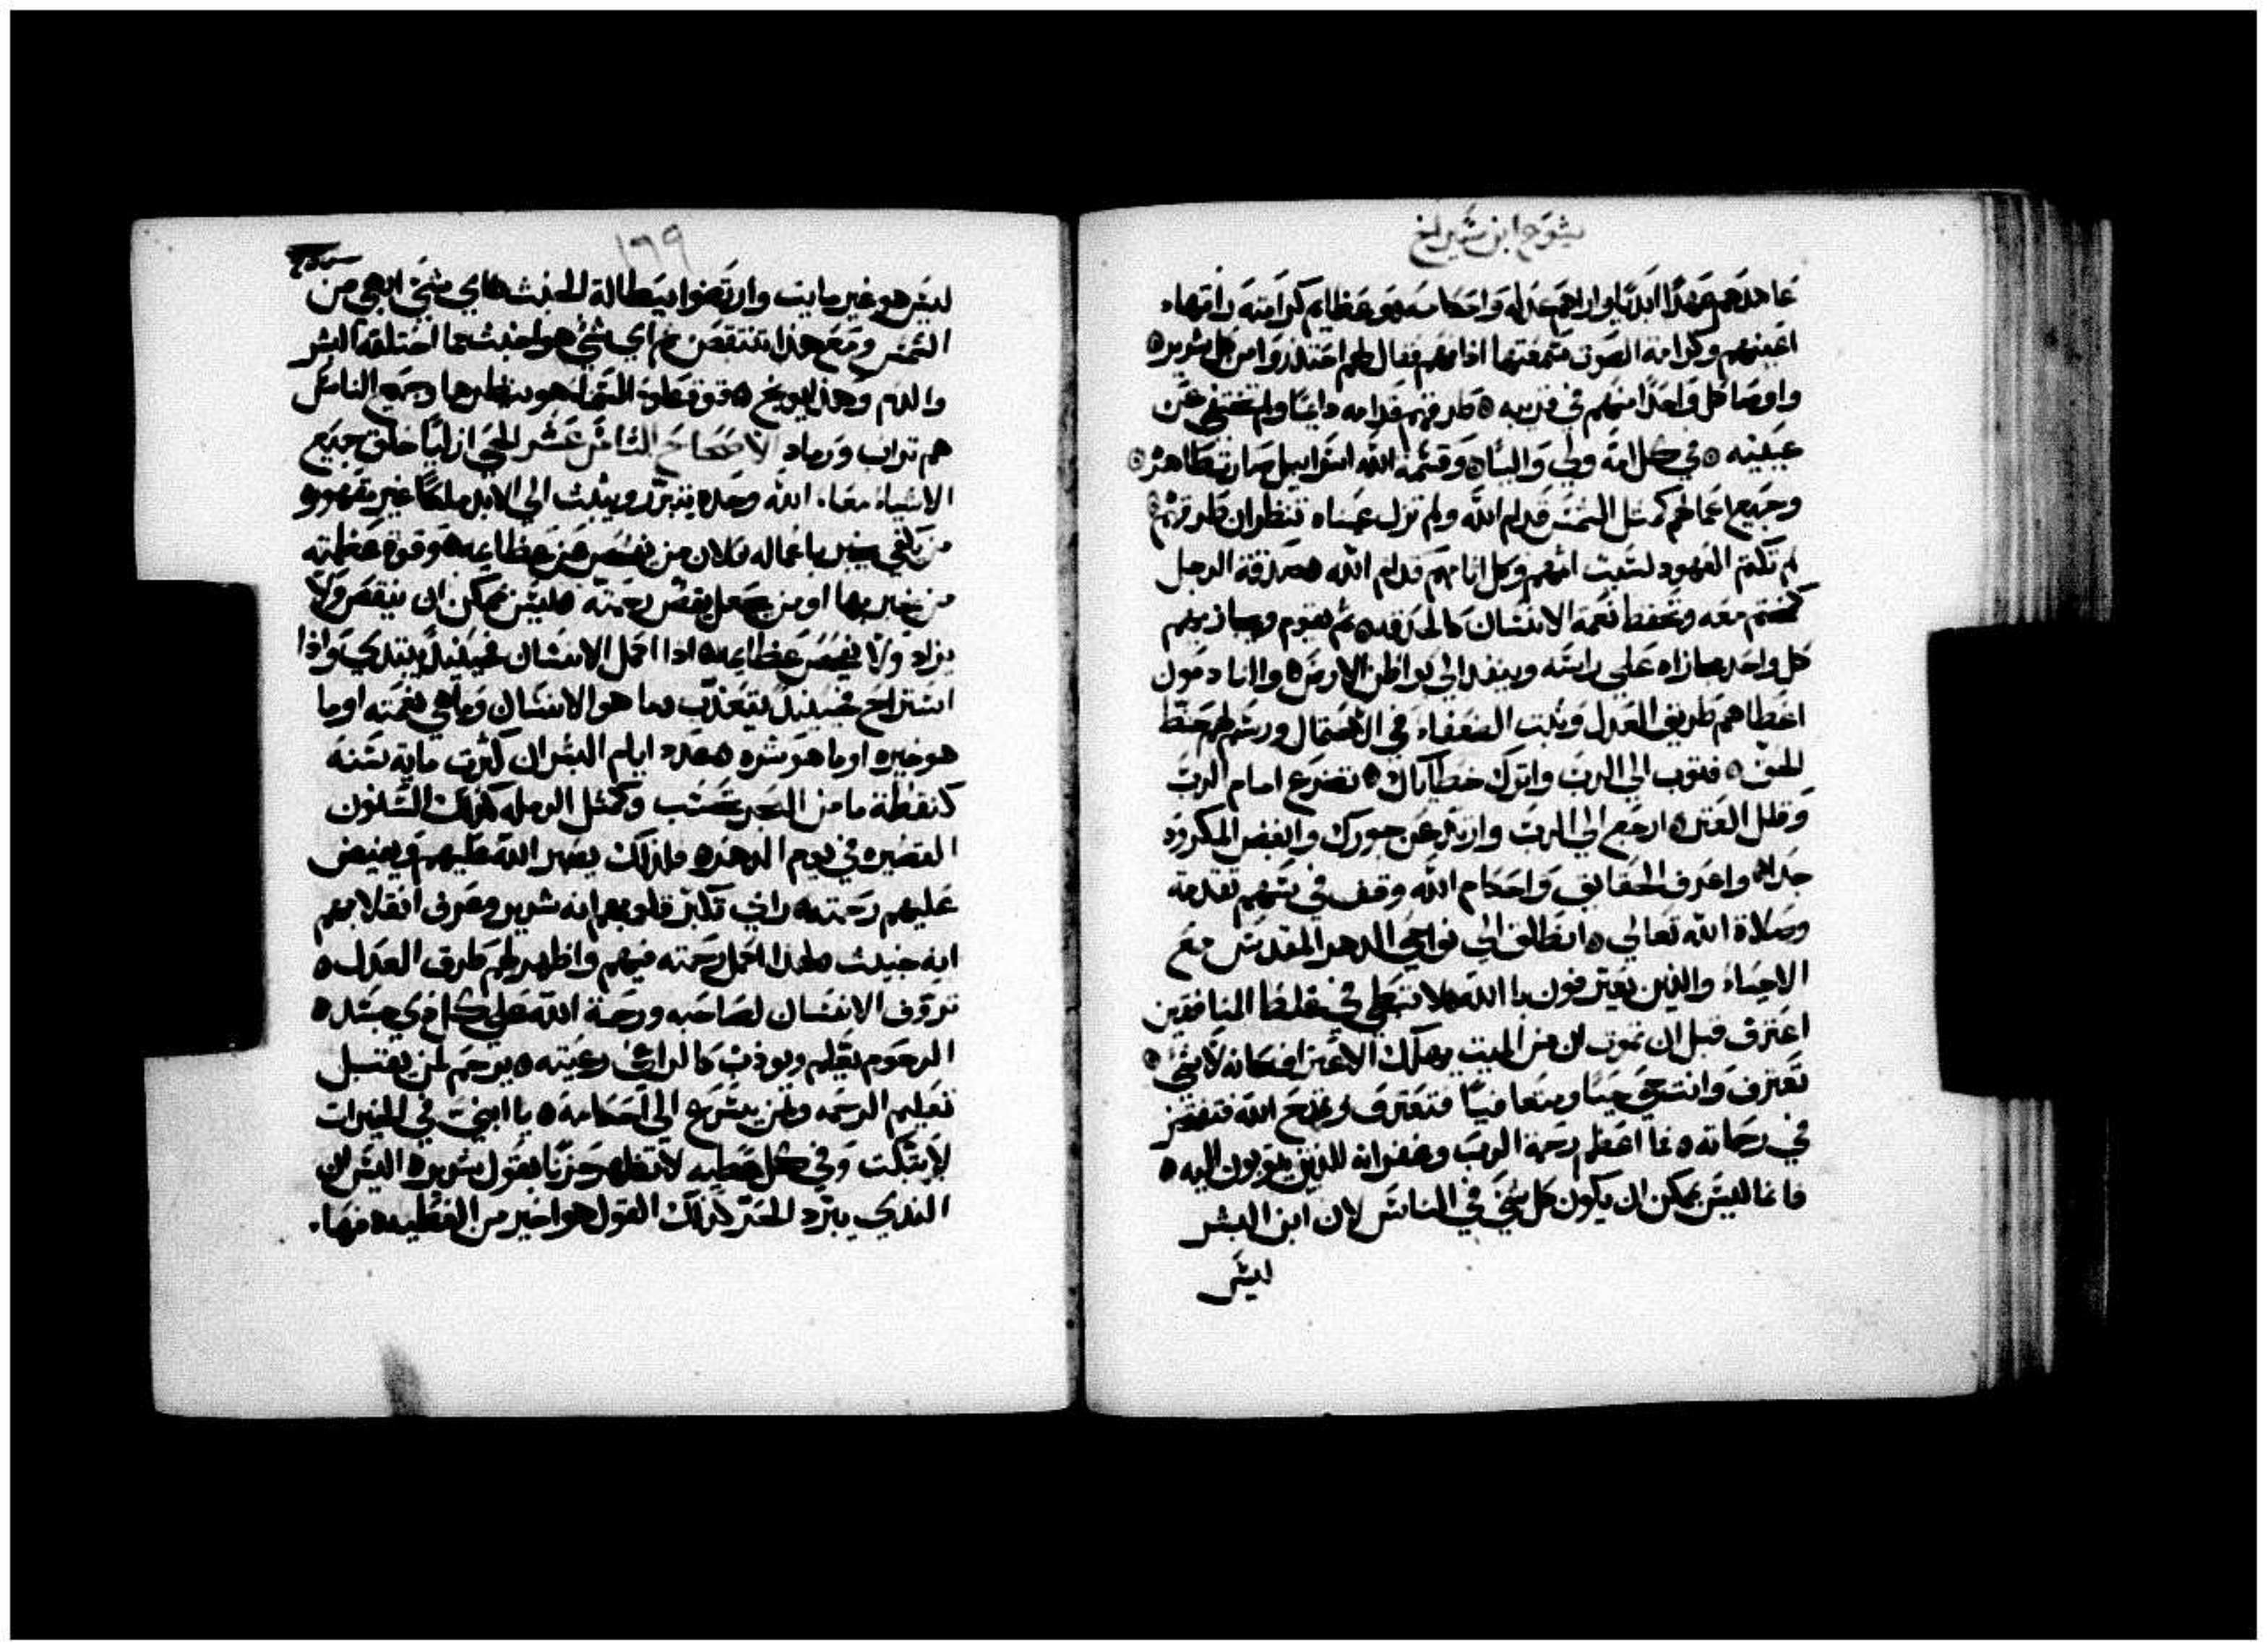 يشوع ابن شيراخ
عاهدهم عهدًا ابديًا واراهم عدله واحكامه هو عظايم كرامته راتها
اعينهم وكرامة الصوت سمعتها اذانهم فقال لهم احتذروا من كل شرير
واوصا كل واحدًا منهم في قريبه طرقهم قدامه دايمًا ولم تختفي عن
عينيه في كل امة ولي واليًا وقسمة الله اسراييل صارت ظاهره
وجميع اعمالهم كمثل الشمس قدام الله ولم تزل عيناه تنظران طرقهم
لم تكتم العهود لسبب اثمهم وكل اثامهم قدام الله صدقة الرجل
كختم معه وتحفظ نعمة الانسان كالحدقه ثم يقوم ويجازيهم
كل واحد مجازاه على راسه وينفد الى بواطن الارض والنادمون
اعطاهم طريق العدل وثبت الضعفاء في الاحتمال ورسم لهم حظ
للحق فتوب الى الرب واترك خطاياك تضرع امام الرب
وقلل العثره ارجع الى الرب وارتد عن جورك وابغض المكروه
جدًا واعرف الحقايق واحكام الله وقف في سهم تقدمة
وصلاة الله تعالى انطلق الى نواحي الدهر المقدس مع
الاحياء والذين يعترفون بالله لا تبطي في غلط المنافقين
اعترف قبل ان تموت لان من الميت يهلك الاعتراف كانه لا شي
تعترف وانت حي حيًا ومتعافيًا فتعترف وتمدح الله فتفتخر
في رحماته فما اعظم رحمة الرب وغفرانه للذين يتوبون اليه
فانما ليس يمكن ان يكون كل شي في الناس لان ابن البشر
ليس
١٦٩
ليس هو غير مايت وارتضوا ببطالة الخبث فاي شي ابهى من
الشمس ومع هذا تنتقص ام اي شي هو اخبث مما اختلقه البشر
والدم وهذا يوبخ قوة علو السما هو ينظرها وجميع الناس
هم تراب ورماد الاصحاح الثامن عشر الحي ازليًا خلق جميع
الاشياء معًا الله وحده يتبرر ويثبت الى الابد ملكًا غير مقهور
من يكفي يخبر باعماله فلان من يفحص عن عظايمه وقوة عظمته
من يخبر بها او من يجعل يقص رحمته فليس يمكن ان ينقص ولا
يزاد ولا يفحص عظايمه اذا اكمل الانسان فحينيذ يبتدي واذا
استراح فحينيذ يتعذب فما هو الانسان وما هي نعمته اوما
هو خيره اوما هو شره فعدد ايام البشر ان كثرت ماية سنه
كنقطة ما من البحر تحسب وكمثل الرمله كذلك السنون
القصيره في يوم الدهر فلذلك يصبر الله عليهم ويفيض
عليهم رحمته راى تكبر قلوبهم انه شرير وعرف انقلابهم
انه خبيث فلهذا اكمل رحمته فيهم واظهر لهم طرق العدل
تروف الانسان لصاحبه ورحمة الله على كل ذي جسد
الرحوم يعلم ويوذب كالراعي رعيته يرحم لمن يقتبل
تعليم الرحمه ولمن يسرع الى احكامه يا ابني في الخيرات
لا تبكت وفي كل عطيه لا تظهر حزنًا بقول شرير اليس ان
الندي يبرد الحر كذلك القول هو اخير من العطيه فها